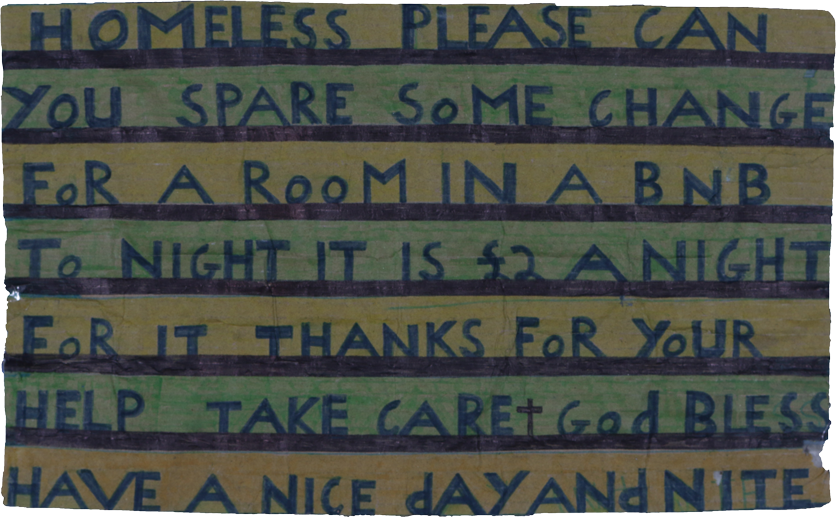 HOMELESS PLEASE CAN
YOU SPARE SoME CHANGE
FoR A RooM IN A BNB
To NIGHT IT IS £2 A NIGHT
FoR IT THANKS FoR YoUR
HELP TAKE CARE✝God BLESS
HAVE A NICE dAY ANd NITE